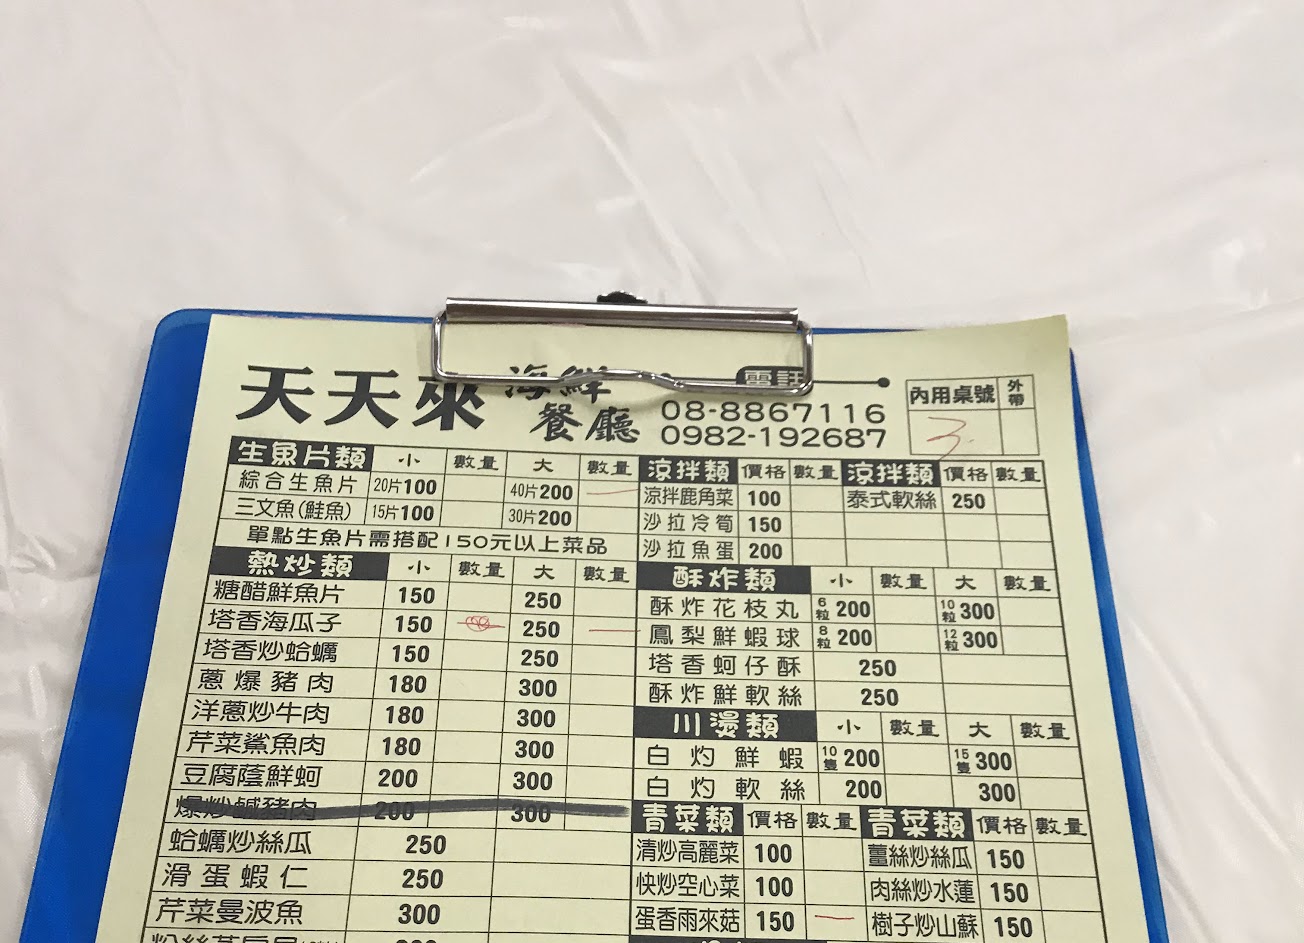 天天來 海鮮
餐廳
電話
08-8867116
0982-192687
內用桌號 外帶
3.
生魚片類 小 數量 大 數量
綜合生魚片 20片100 40片200
三文魚(鮭魚) 15片100 30片200
單點生魚片需搭配150元以上菜品
熱炒類 小 數量 大 數量
糖醋鮮魚片 150 250
塔香海瓜子 150 250
塔香炒蛤蠣 150 250
蔥爆豬肉 180 300
洋蔥炒牛肉 180 300
芹菜鯊魚肉 180 300
豆腐蔭鮮蚵 200 300
爆炒鹹豬肉 200 300
蛤蠣炒絲瓜 250
滑蛋蝦仁 250
芹菜曼波魚 300
涼拌類 價格 數量 涼拌類 價格 數量
涼拌鹿角菜 100 泰式軟絲 250
沙拉冷筍 150
沙拉魚蛋 200
酥炸類 小 數量 大 數量
酥炸花枝丸 6粒200 10粒300
鳳梨鮮蝦球 8粒200 12粒300
塔香蚵仔酥 250
酥炸鮮軟絲 250
川燙類 小 數量 大 數量
白灼鮮蝦 10隻200 15隻300
白灼軟絲 200 300
青菜類 價格 數量 青菜類 價格 數量
清炒高麗菜 100 薑絲炒絲瓜 150
快炒空心菜 100 肉絲炒水蓮 150
蛋香雨來菇 150 樹子炒山蘇 150